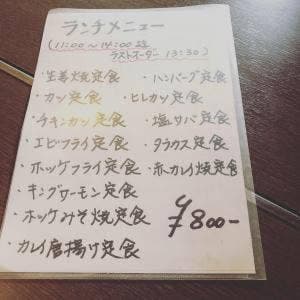 ランチメニュー
(11:00～14:00迄
ラストオーダー 13:30)
・生姜焼定食 ・ハンバーグ定食
・カツ定食 ・ヒレカツ定食
・チキンカツ定食 ・塩サバ定食
・エビフライ定食 ・タラフス定食
・ホッケフライ定食 ・赤カレイ焼定食
・キングサーモン定食
・ホッケみそ焼定食
・カレイ唐揚げ定食
¥800-